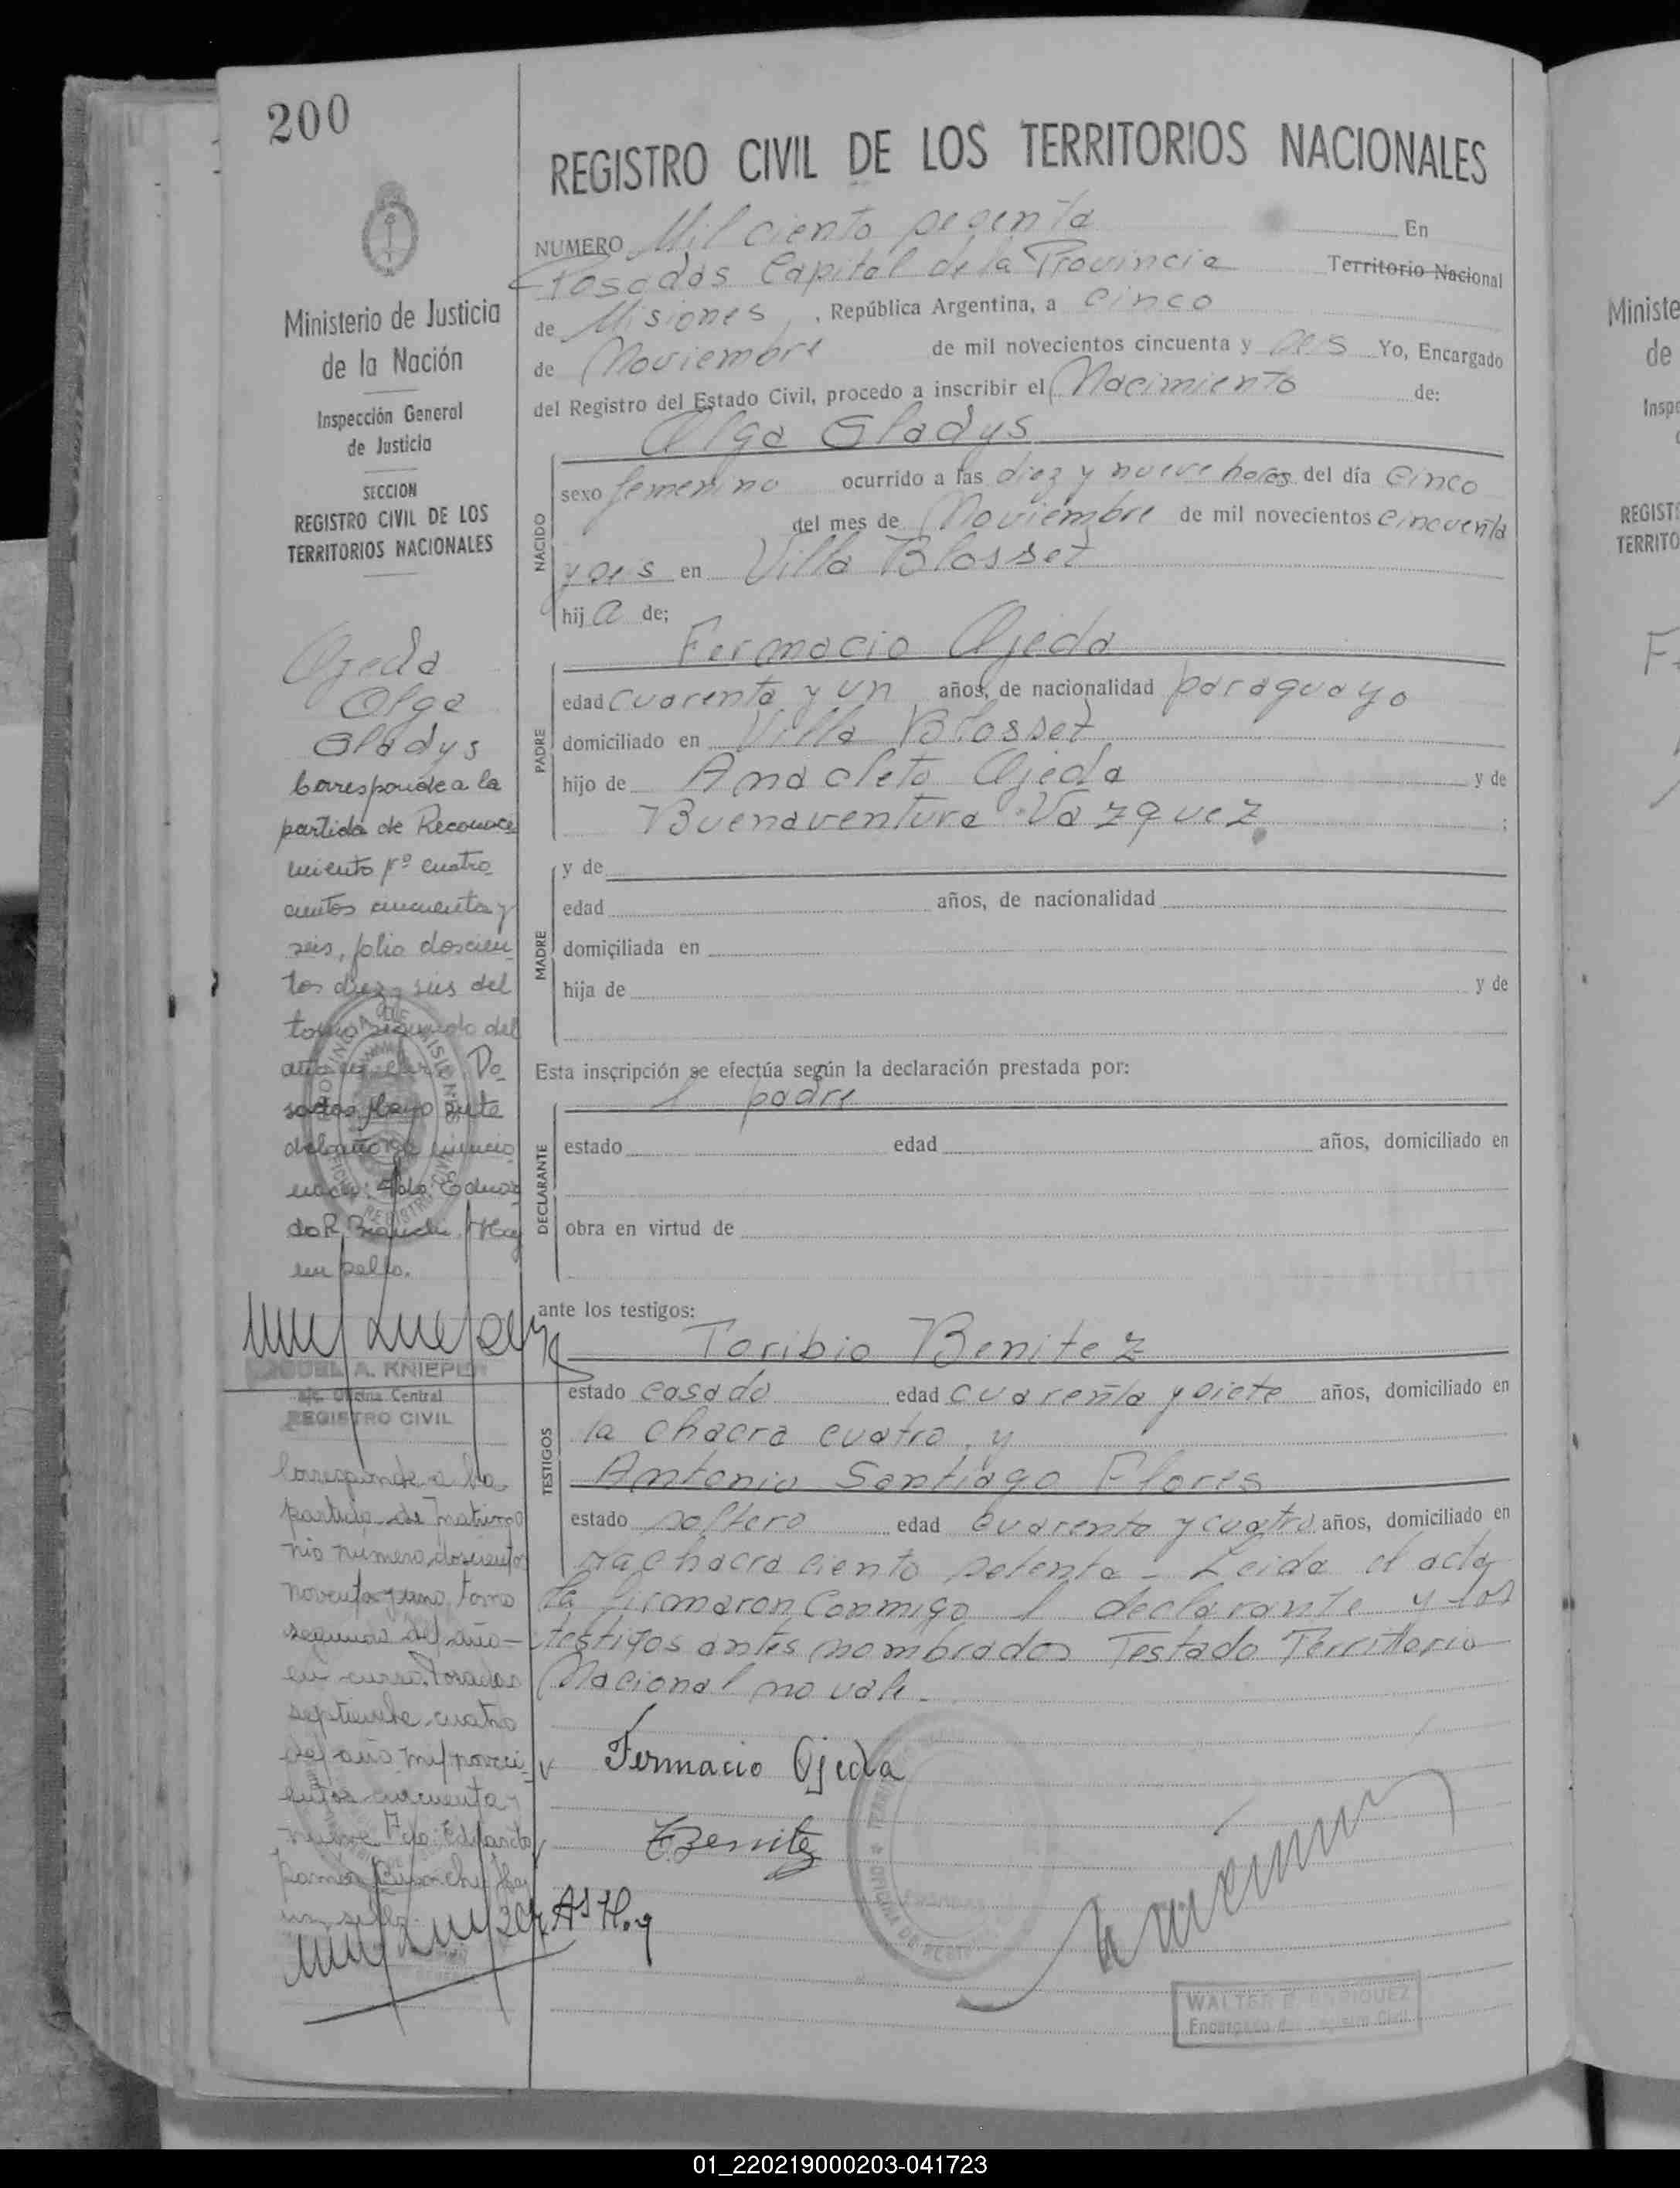 200
Ministerio de Justicia
de la Nación
Inspección General
de Justicia
SECCION
REGISTRO CIVIL DE LOS
TERRITORIOS NACIONALES
Ojeda
Olga
Gladys
Corresponde a la
partida de Reconoce
miento Nº cuatro
cientos cincuenta y
seis, folio doscien
tos diez y seis del
tomo segundo del
Po
sadas Mayo siete
Edua
do R.
un sello.
A. KNIEPER
Oficina Central
REGISTRO CIVIL
Corresponde a la
partida de Matrimo
nio numero doscientos
noventa y uno, tomo
segundo del año
en curso. Posadas
septiembre cuatro
del año mil noveci
entos cincuenta y
nueve Fdo. Eduardo
un sello
REGISTRO CIVIL DE LOS TERRITORIOS NACIONALES
NUMERO Mil ciento sesenta En
Posadas Capital de la Provincia Territorio Nacional
de Misiones, República Argentina, a cinco
de Noviembre de mil novecientos cincuenta y seis Yo, Encargado
del Registro del Estado Civil, procedo a inscribir el Nacimiento de:
Olga Gladys
NACIDO
sexo femenino ocurrido a las diez y nueve horas del día cinco
del mes de Noviembre de mil novecientos cincuenta
y seis en Villa Blosset
hija de;
Fermacio Ojeda
PADRE
edad cuarenta y un años, de nacionalidad paraguayo
domiciliado en Villa Blosset
hijo de Anacleto Ojeda y de
Buenaventura Vazquez ;
MADRE
y de
edad años, de nacionalidad
domiciliada en
hija de y de
Esta inscripción se efectúa según la declaración prestada por:
l padre
DECLARANTE
estado edad años, domiciliado en
obra en virtud de
ante los testigos:
Toribio Benitez
TESTIGOS
estado casado edad cuarenta y siete años, domiciliado en
la chacra cuatro, y
Antonio Santiago Flores
estado soltero edad cuarenta y cuatro años, domiciliado en
la chacra ciento setenta - Leida el acta
la firmaron conmigo l declarante y los
testigos antes nombrados Testado Territorio
Nacional no vale.
Fermacio Ojeda
Benitez
WALTER ENRIQUEZ
Encargado del Registro Civil
Ministe
de
Inspe
REGISTR
TERRITO
01_220219000203-041723